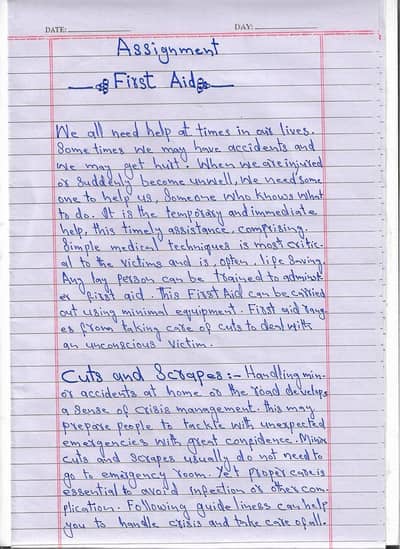 DATE:
DAY:
Assignment
First Aid
We all need help at times in our lives.
Some times we may have accidents and
we may get hurt. When we are injured
or suddenly become unwell, we need some
one to help us, someone who knows what
to do. It is the temporary and immediate
help, this timely assistance, comprising.
Simple medical techniques is most critic-
al to the victims and is, often, life saving.
Any lay person can be trained to administ-
er first aid. This First Aid can be carried
out using minimal equipment. First aid rang-
es from taking care of cuts to deal with
an unconscious victim.
Cuts and Scrapes:- Handling min-
or accidents at home or the road develops
a sense of crisis management. this may
prepare people to tackle with unexpected
emergencies with great confidence. Minor
cuts and scrapes usually do not need to
go to emergency room. Yet proper care is
essential to avoid infection or other com-
plication. Following guide liness can help
you to handle crisis and take care of all.